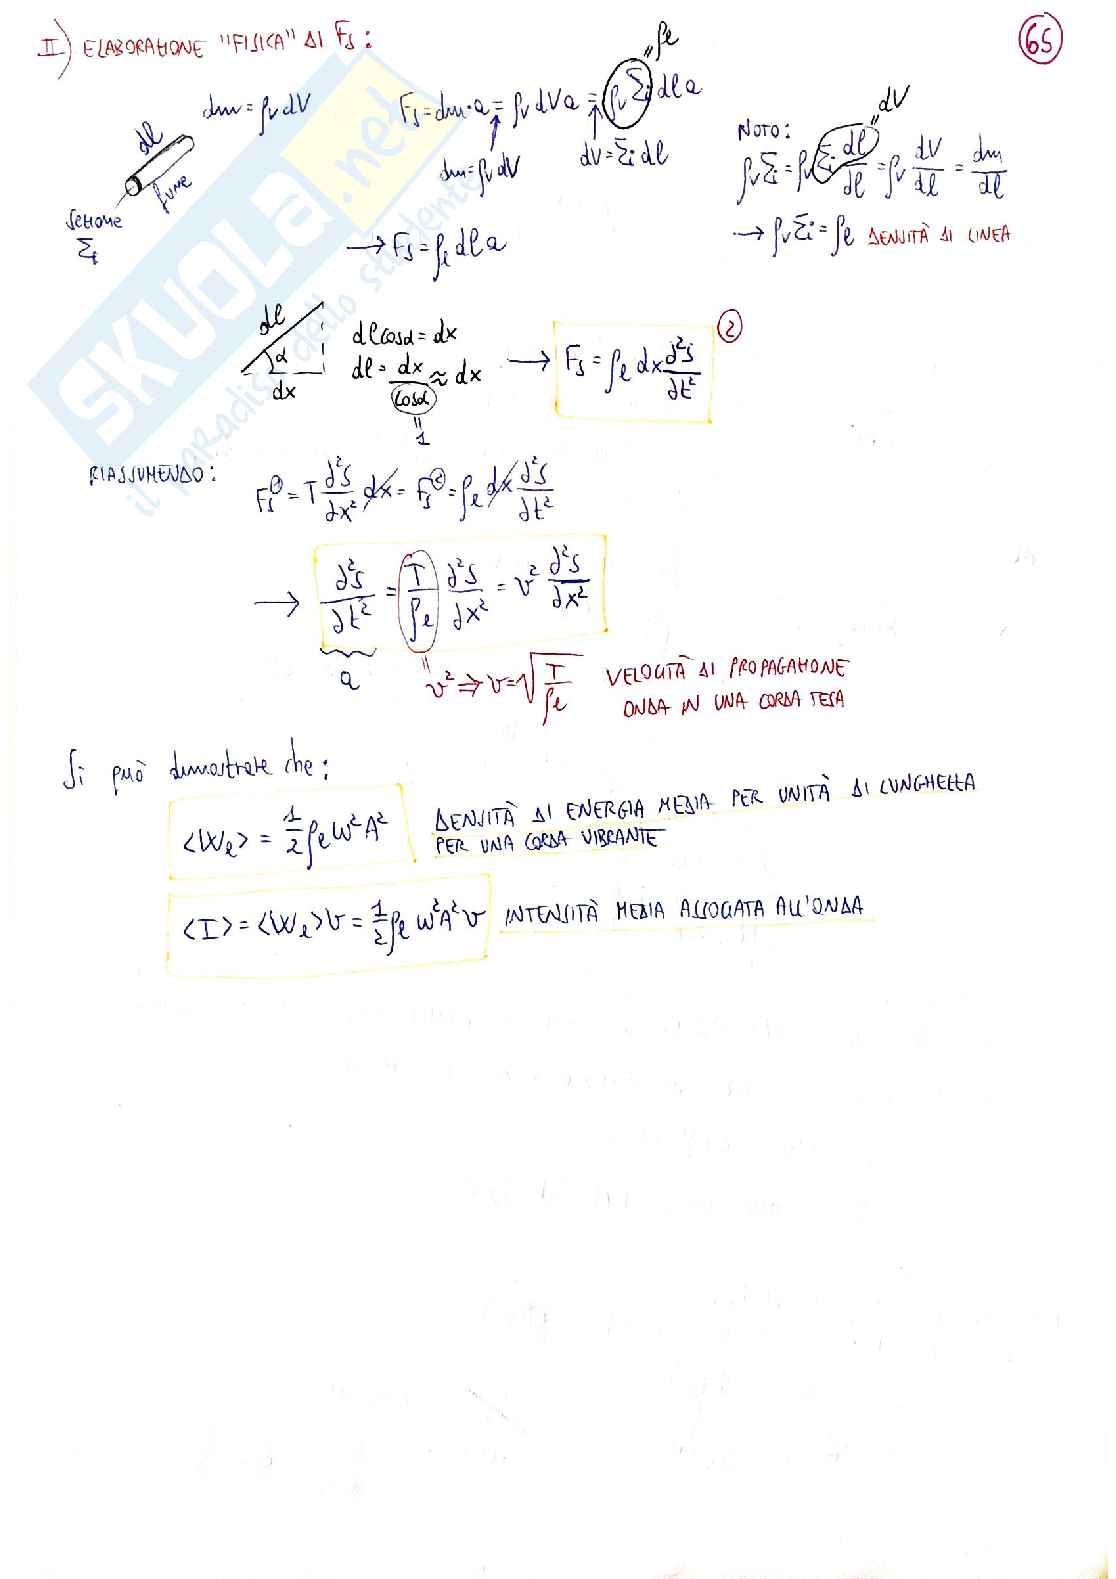 II) ELABORAZIONE "FISICA" DI Fs:
65
dm = ρv dV
dl
fune
SEZIONE
Σi
Fs = dm·a = ρv dV a = ρv Σi dl a
= ρe
dm = ρv dV
dV = Σi dl
→ Fs = ρe dl a
NOTO:
= dV
ρv Σi = ρv Σi dl/dl = ρv dV/dl = dm/dl
→ ρv Σi = ρe DENSITÀ DI LINEA
dl
α
dx
dl cosα = dx
dl = dx/cosα ≈ dx
= 1
→ Fs = ρe dx ∂²s/∂t² ②
RIASSUMENDO:
Fs① = T ∂²s/∂x² dx = Fs② = ρe dx ∂²s/∂t²
→ ∂²s/∂t² = T/ρe ∂²s/∂x² = v² ∂²s/∂x²
a
= v² ⇒ v = √(T/ρe) VELOCITÀ DI PROPAGAZIONE
ONDA IN UNA CORDA TESA
Si può dimostrare che:
<We> = 1/2 ρe w² A² DENSITÀ DI ENERGIA MEDIA PER UNITÀ DI LUNGHEZZA
PER UNA CORDA VIBRANTE
<I> = <We> v = 1/2 ρe w² A² v INTENSITÀ MEDIA ASSOCIATA ALL'ONDA
SKUOLA.net
il paradiso dello studente